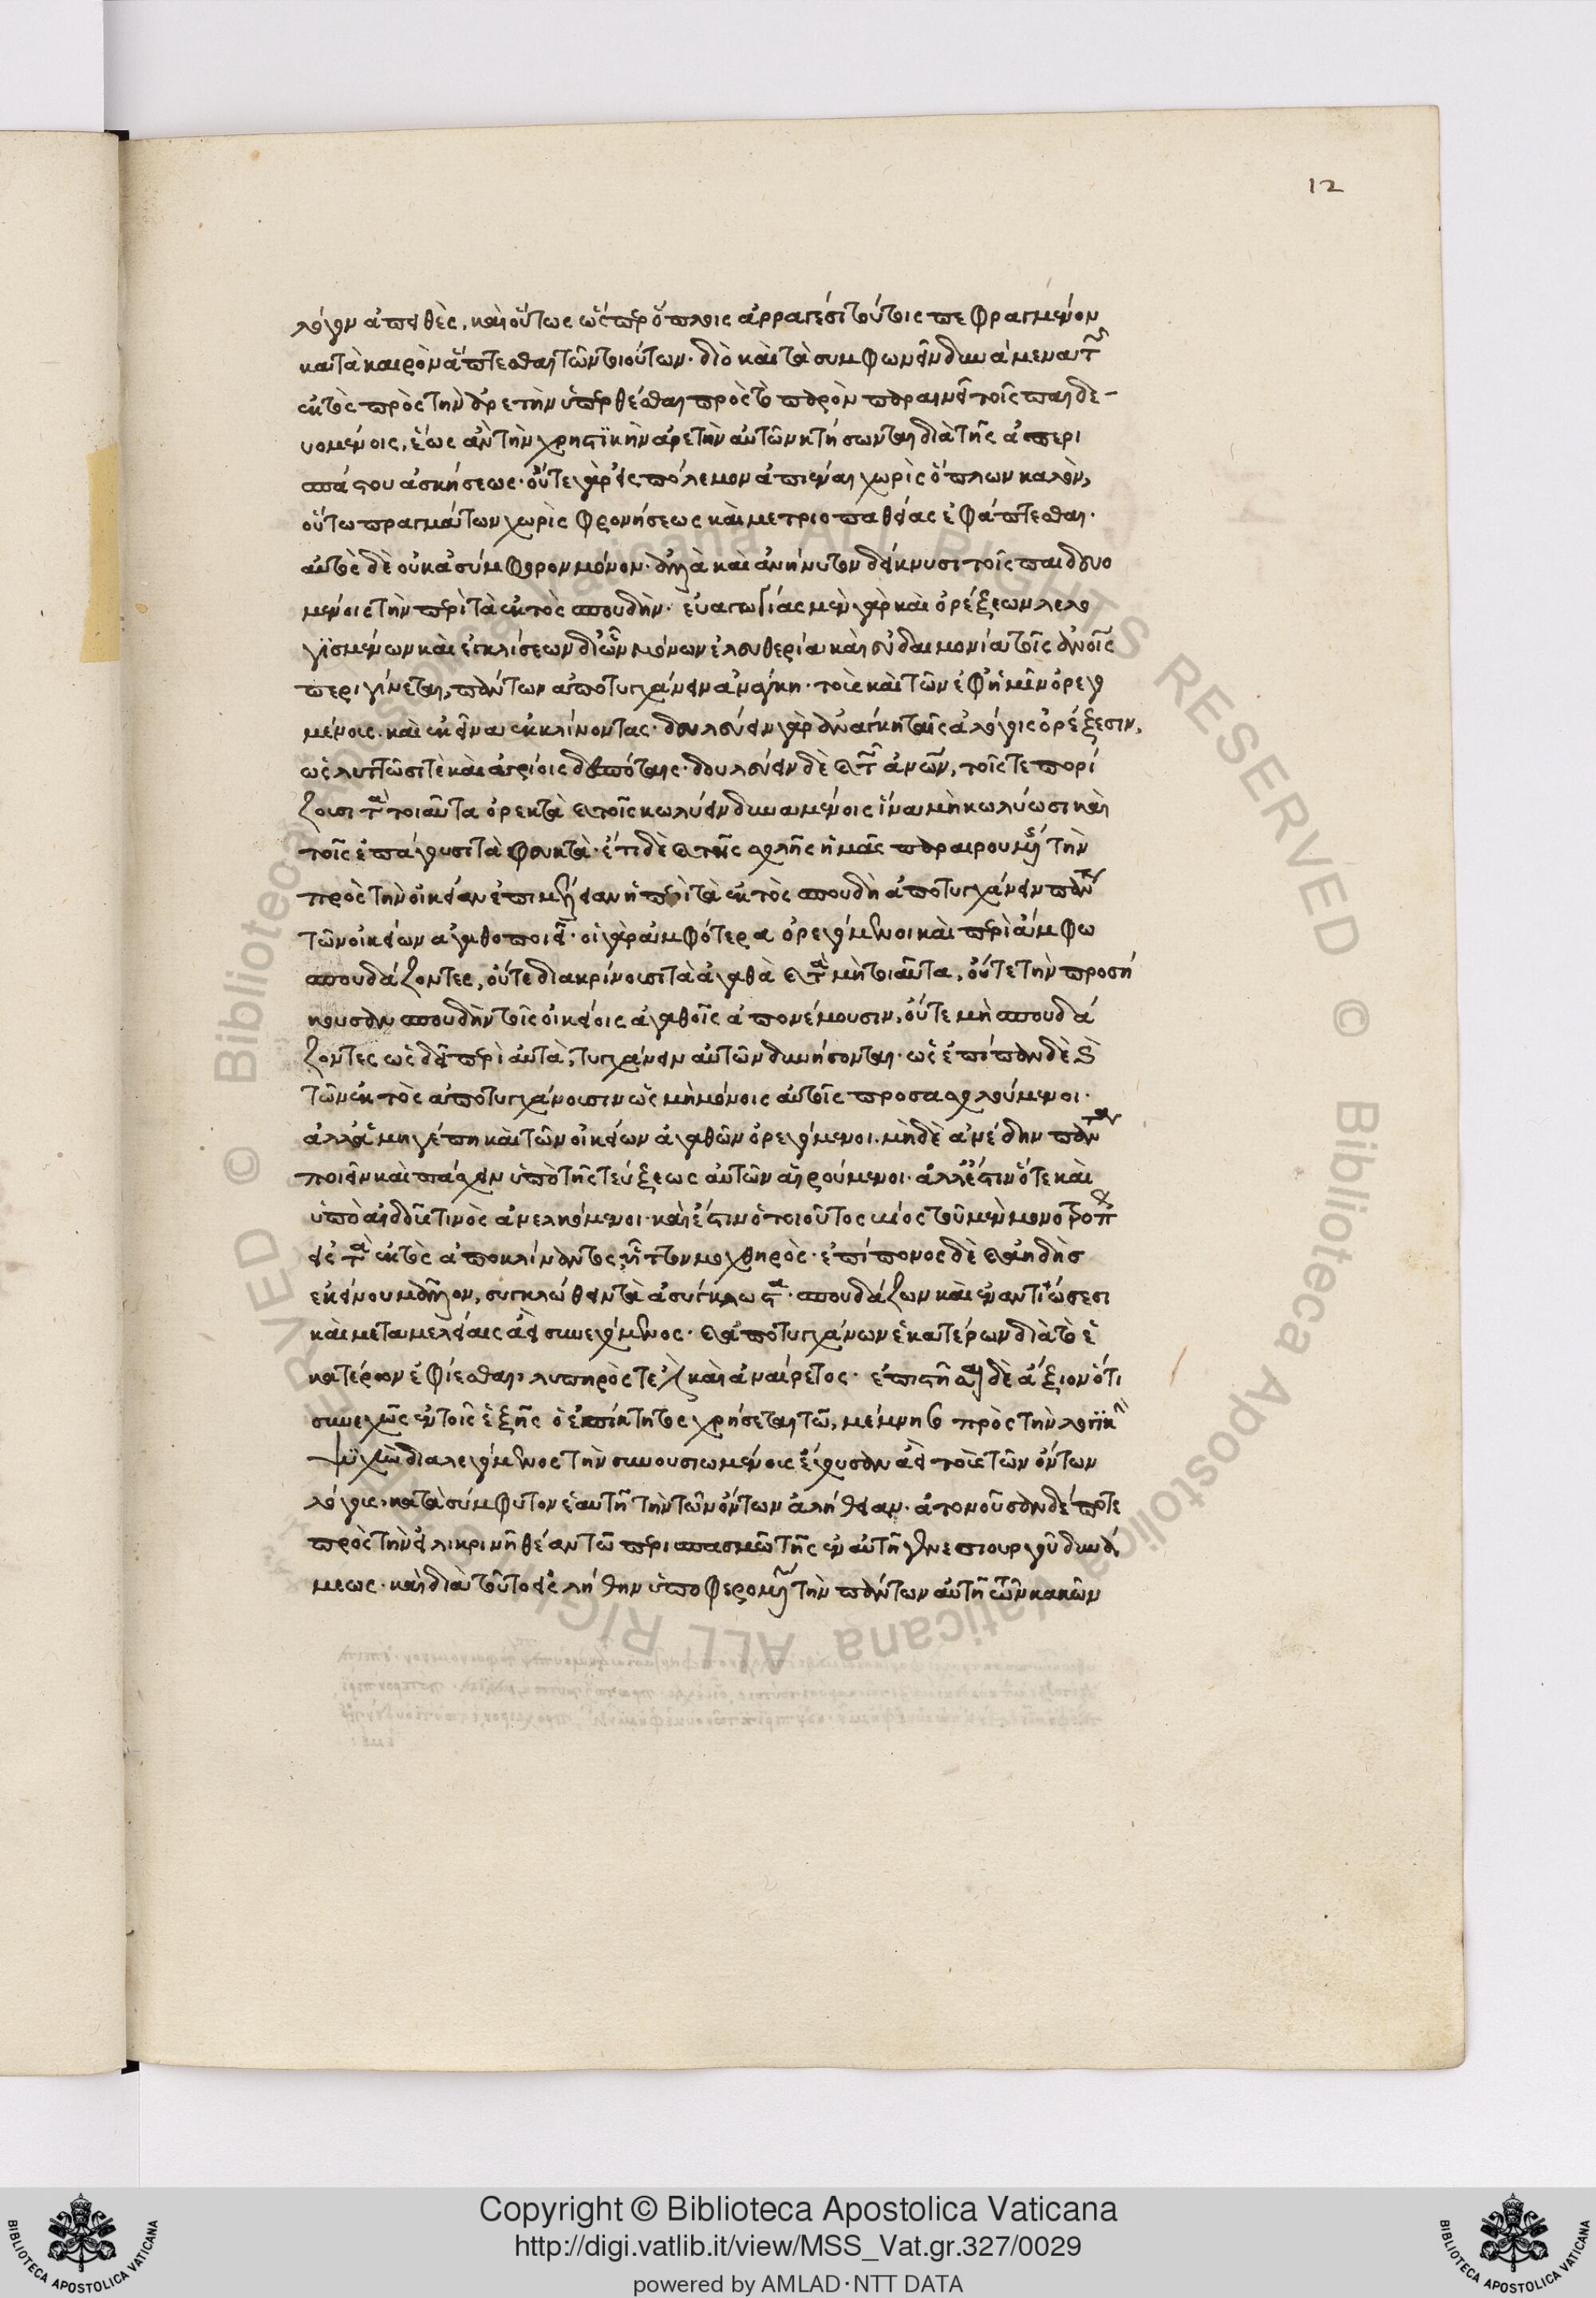 12
λόγον ἀπειθὲς, καὶ οὕτως ὥσπερ ὅπλοις ἀρραγέσι τούτοις πεφραγμένον
κατὰ καιρὸν ἅπτεσθαι τῶν τοιούτων. διὸ καὶ τὰ συμφωνεῖν δυνάμενα τῶν
ἐκτὸς πρὸς τὴν ἀρετὴν ὑπερθέσθαι πρὸς τὸ παρὸν παραινεῖ τοῖς παιδε-
υομένοις, ἕως ἂν τὴν χρηστικὴν ἀρετὴν αὐτῶν κτήσωνται διὰ τῆς ἀπερι
σπάστου ἀσκήσεως. οὔτε γὰρ εἰς πόλεμον ἀπιέναι χωρὶς ὅπλων καλόν,
οὔτω πραγμάτων χωρὶς φρονήσεως καὶ μετριοπαθείας ἐφάπτεσθαι.
αὐτὸς δὲ οὐκ ἀσύμφορον μόνον. ἀλλὰ καὶ ἀνήνυτον δείκνυσι τοῖς παιδευο
μένοις τὴν περὶ τὰ ἐκτὸς σπουδήν. εὐαγωγίας μὲν γὰρ καὶ ὀρέξεων λελο
γϊσμένων καὶ ἐκκλίσεων δι ὧν μόνων ἐλευθερία καὶ εὐδαιμονία τοῖς ἀνοις
περιγίνεται, πάντων ἀποτυγχάνειν ἀνάγκη. τοὶς καὶ τῶν ἐφ ἡμῖν ὀρεγο
μένοις. καὶ ἐκεῖνα ἐκκλίνοντας. δουλεύειν γὰρ ἀνάγκη ταῖς ἀλόγοις ὀρέξεσιν,
ὡς λυττῶσί τε καὶ ἀγρίοις δεσπόταις. δουλεύειν δὲ καὶ τῶν ἀνων, τοῖς τε πορί
ζουσι τὰ τοιαῦτα ὀρεκτὰ καὶ τοῖς κωλύειν δυναμένοις ἵνα μὴ κωλύωσι καὶ
τοῖς ἐπάγουσι τὰ φευκτά. ἔτι δὲ καὶ τῆς σχολῆς ἡμᾶς παραιρουμένη τὴν
πρὸς τὴν οἰκείαν ἐπιμέλειαν ἡ περὶ τὰ ἐκτὸς σπουδὴ ἀποτυγχάνειν πάντων
τῶν οἰκείων ἀγαθο ποιεῖ. οἱ γὰρ ἀμφότερα ὀρεγόμενοι καὶ περὶ ἄμφω
σπουδάζοντες, οὔτε διακρίνουσι τὰ ἀγαθὰ καὶ τὰ μὴ τοιαῦτα, οὔτε τὴν προσή
κουσαν σπουδὴν τοῖς οἰκείοις ἀγαθοῖς ἀπονέμουσιν, οὔτε μὴ σπουδά
ζοντες ὡς δεῖ περὶ αὐτὰ, τυγχάνειν αὐτῶν δυνήσονται. ὡς ἐπίπαν δὲ καὶ
τῶν ἐκτὸς ἀποτυγχάνουσιν ὡς μὴ μόνοις αὐτοῖς προσασχολούμενοι.
ἀλλ ἁμηγέπη καὶ τῶν οἰκείων ἀγαθῶν ὀρεγόμενοι. μηδὲ ἀνέδην πάντα
ποιεῖν καὶ πάσχειν ὑπὸ τῆς τεύξεως αὐτῶν αἱρούμενοι. ἀλλ ἔστιν ὅτε καὶ
ὑπὸ αἰδοῦς τινὸς ἀνελκόμενοι. καὶ ἔστιν ὁ τοιοῦτος βίος τοῦ μὲν μονοτρόπως
εἰς τὰ ἐκτὸς ἀποκλίναντος ἧττον μοχθηρός. ἐπίπονος δὲ καὶ ἀηδὴς
ἐκείνου μᾶλλον, συγκλώθειν τὰ ἀσύγκλωστα. σπουδάζων καὶ ἐναντιώσεσι
καὶ μεταμελείαις ἀεὶ συνεχόμενος. καὶ ἀποτυγχάνων ἑκατέρων διὰ τὸ ἑ
κατέρων ἐφίεσθαι, λυπηρός τέ ἐστι καὶ ἀναίρετος. ἐπιστῆσαι δὲ ἄξιον ὅτι
συνεχῶς ἐν τοῖς ἑξῆς ὁ ἐπίκτητος χρήσεται τῷ, μέμνησο πρὸς τὴν λογϊκὴν
ψϋχὴν διαλεγόμενος τὴν συνουσιωμένοις ἔχουσαν ἀεὶ τοὶς τῶν ὄντων
λόγοις. κατὰ σύμφυτον ἑαυτῇ τὴν τῶν ὄντων ἀλήθειαν. ἀτονοῦσαν δέ ποτε
πρὸς τὴν εἰλικρινῆ θέαν τῶ περισπασμῶ τῆς ἐν αὐτῇ γενεσιουργοῦ δυνά
μεως. καὶ διὰ τοῦτο εἰς λήθην ὑποφερομένη τὴν πάντων αὐτῇ τῶν κακῶν
Copyright © Biblioteca Apostolica Vaticana
http://digi.vatlib.it/view/MSS_Vat.gr.327/0029
powered by AMLAD·NTT DATA